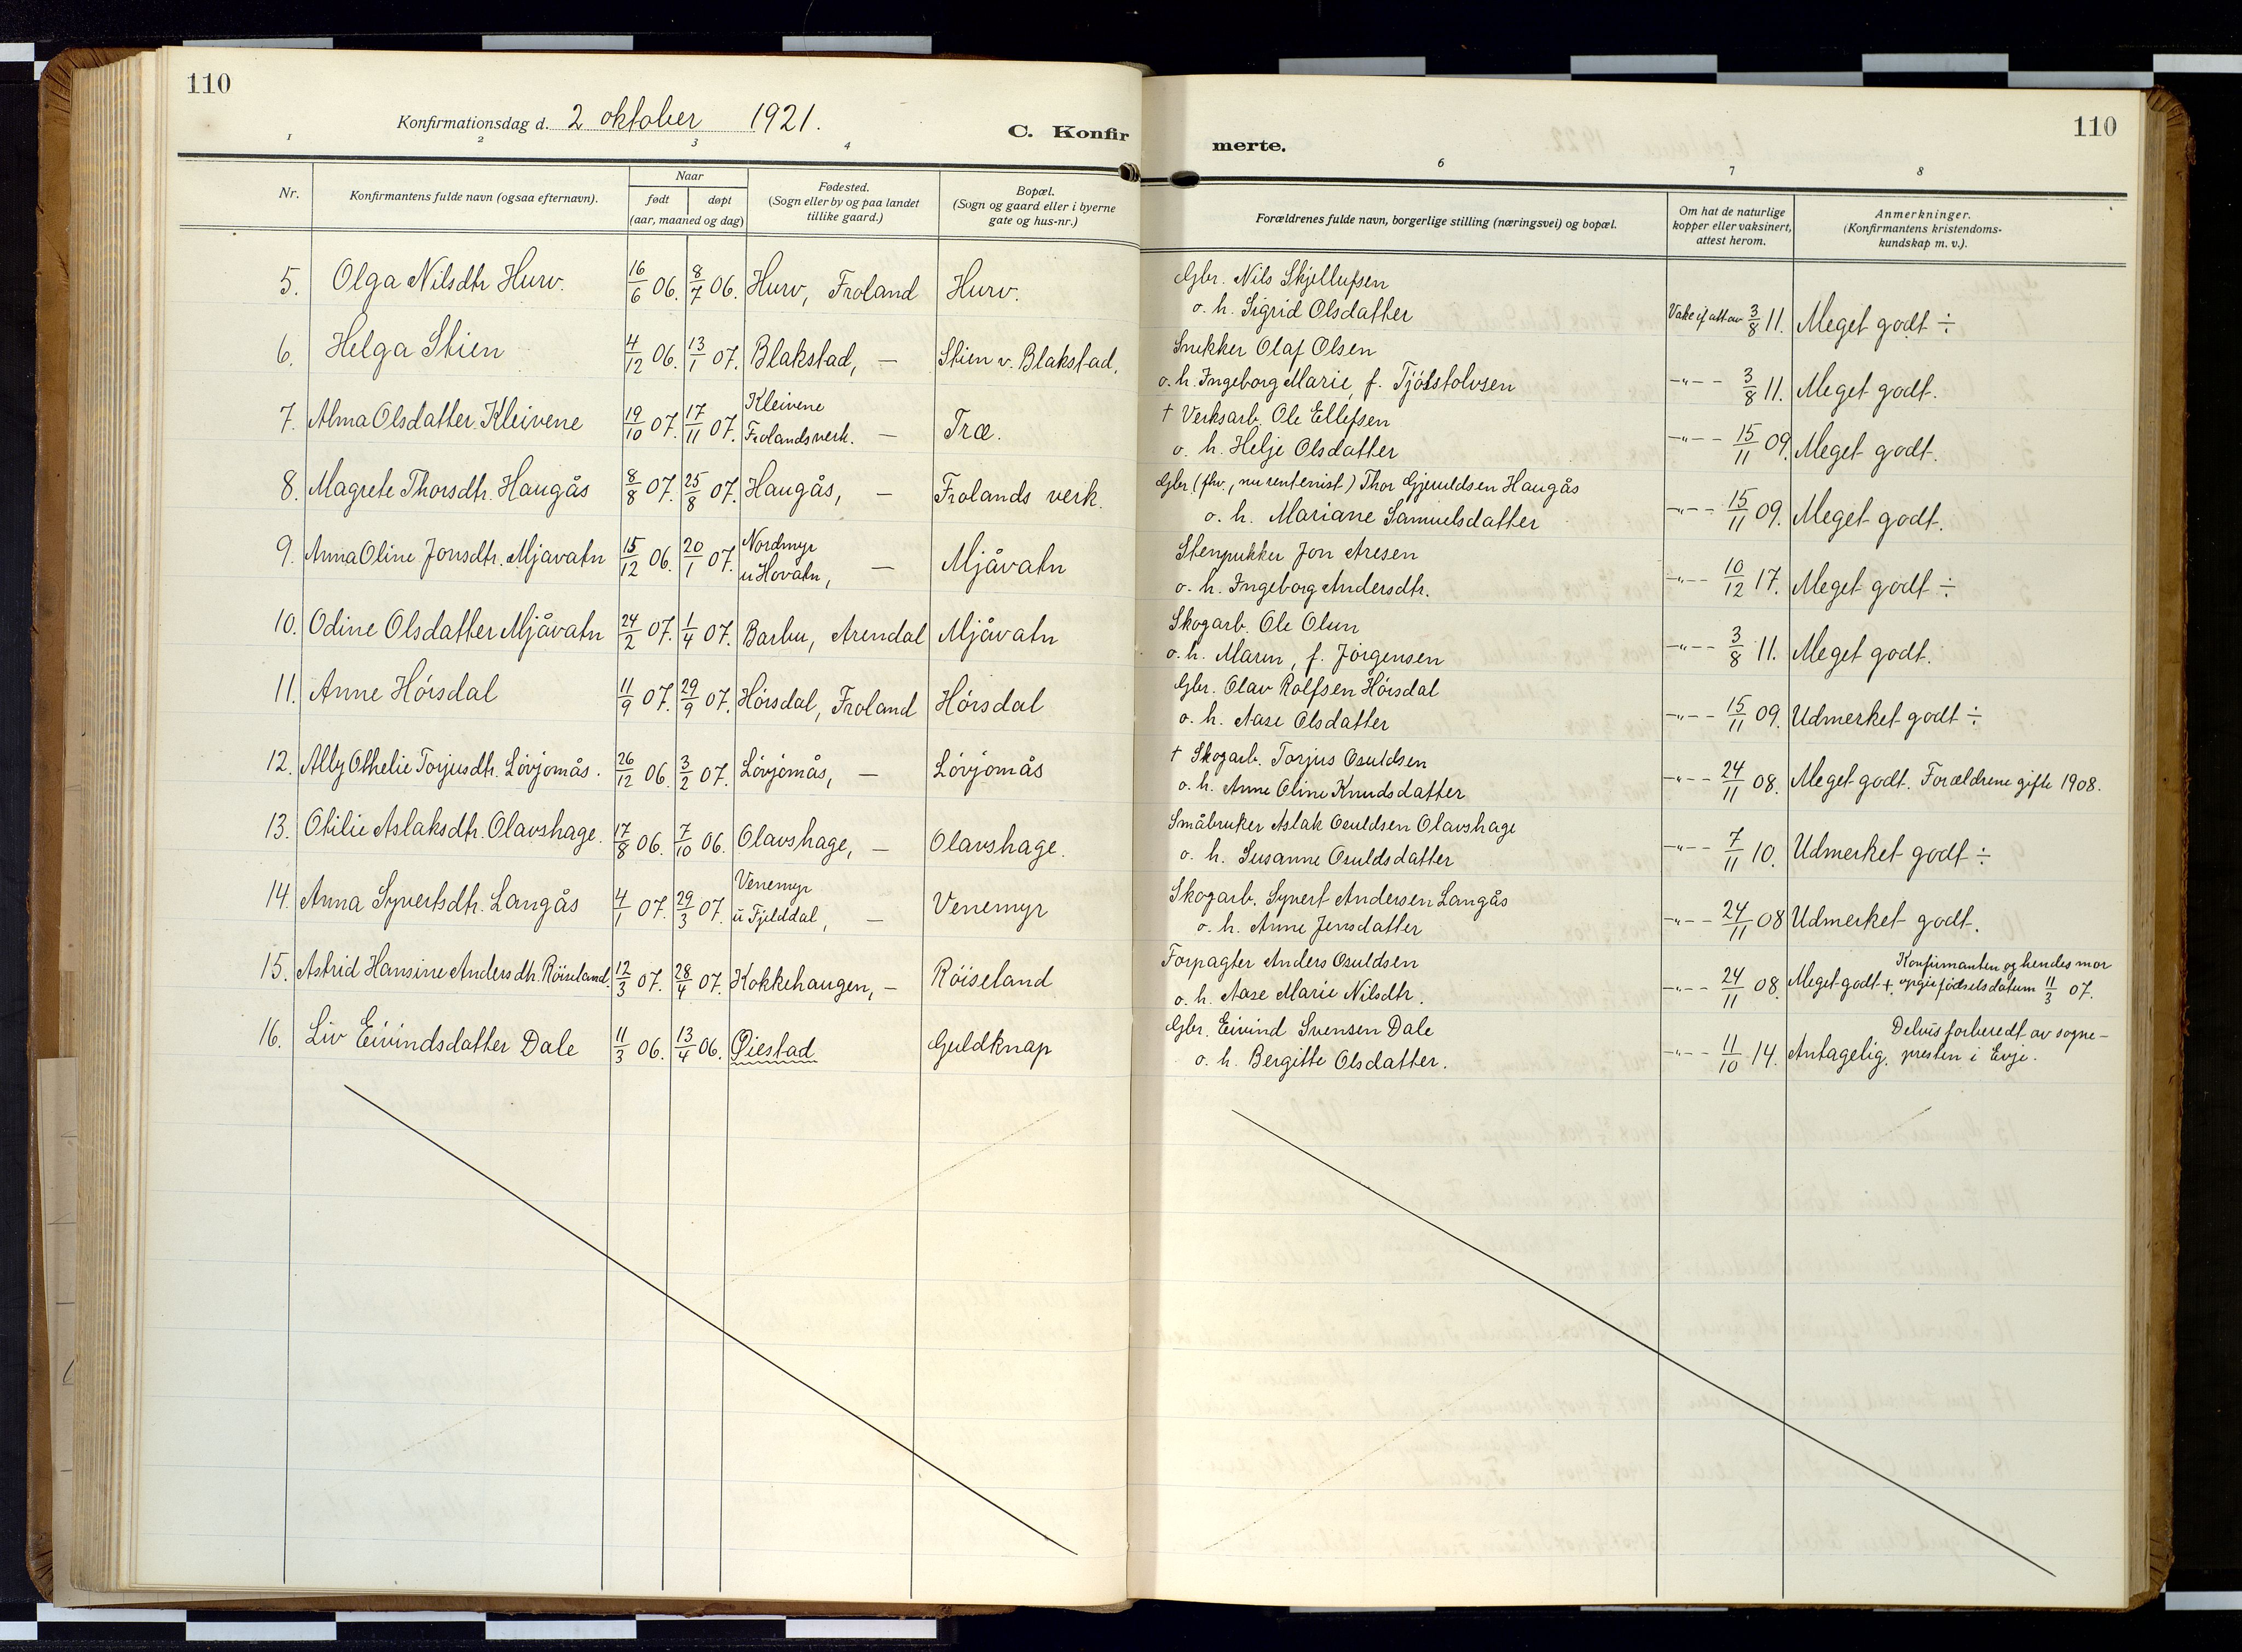 110
Konfirmationsdag d. 2 oktober 1921.
C. Konfir
merte.
110
1 2 3 4 6 7 8
Nr.
Konfirmantens fulde navn (ogsaa efternavn).
Naar
født døpt
(aar, maaned og dag)
Fødested.
(Sogn eller by og paa landet
tillike gaard.)
Bopæl.
(Sogn og gaard eller i byerne
gate og hus-nr.)
Forældrenes fulde navn, borgerlige stilling (næringsvei) og bopæl.
Om hat de naturlige
kopper eller vaksinert,
attest herom.
Anmerkninger.
(Konfirmantens kristendoms-
kundskap m. v.).
5. Olga Nilsdtr Hurv. 16/6 06. 8/7 06. Hurv, Froland Hurv.
Gbr. Nils Skjellufsen
o. h. Sigrid Olsdatter
3/8 11. Meget godt ÷
6. Helga Stien 4/12 06. 13/1 07. Blakstad, — Stien v. Blakstad.
Snekker Olaf Olsen
o. h. Ingeborg Marie, f. Tjóstolvsen
—"— 3/8 11. Meget godt.
7. Alma Olsdatter Kleivene 19/10 07. 17/11 07. Kleivene
Frolandsverk. — Træ.
† Verksarb. Ole Ellefsen
o. h. Helje Olsdatter
—"— 15/11 09. Meget godt.
8. Magrete Thorsdtr. Haugås 8/8 07. 25/8 07. Haugås, — Frolands verk.
Gbr. (fhv., nu rentenist) Thor Gjeruldsen Haugås
o. h. Mariane Samuelsdatter
—"— 15/11 09. Meget godt.
9. Anna Oline Jonsdtr. Mjåvatn 15/12 06. 20/1 07. Nordmyr
u Hovatn, — Mjåvatn
Stenpukker Jon Aresen
o. h. Ingeborg Andersdtr.
—"— 10/12 17. Meget godt ÷
10. Odine Olsdatter Mjåvatn 24/2 07. 1/4 07. Barbu, Arendal Mjåvatn
Skogarb. Ole Olsen
o. h. Maren, f. Jörgensen
—"— 3/8 11. Meget godt.
11. Anne Hórsdal 11/9 07. 29/9 07. Hórsdal, Froland Hórsdal
Gbr. Olav Rolfsen Hórsdal
o. h. Aase Olsdatter
—"— 15/11 09. Udmerket godt ÷
12. Ally Othelie Torjusdtr. Lövjomås. 26/12 06. 3/2 07. Lövjomås, — Lövjomås
† Skogarb. Torjus Osuldsen
o. h. Anne Oline Knudsdatter
—"— 24/11 08. Meget godt. Forældrene gifte 1908.
13. Otilie Aslaksdtr. Olavshage. 17/8 06. 7/10 06. Olavshage, — Olavshage.
Småbruker Aslak Osuldsen Olavshage
o. h. Susanne Osuldsdatter
—"— 7/11 10. Udmerket godt ÷
14. Anna Syvertsdtr. Langås 4/1 07. 29/3 07. Venemyr
u Fjelddal, — Venemyr
Skogarb. Syvert Andersen Langås
o. h. Anne Jensdatter
—"— 24/11 08 Udmerket godt.
15. Astrid Hansine Andersdtr. Röiseland. 12/3 07. 28/4 07. Kokkehaugen, — Röiseland
Forpagter Anders Osuldsen
o. h. Aase Marie Nilsdtr.
—"— 24/11 08. Meget godt +. Konfirmanten og hendes mor
opgir födselsdatum 11/3 07.
16. Liv Eivindsdatter Dale 11/3 06. 13/4 06. Öiestad Guldknap
Gbr. Eivind Svensen Dale
o. h. Bergitte Olsdatter.
—"— 11/10 14. Antagelig. Delvis forberedt av sogne-
presten i Evje.